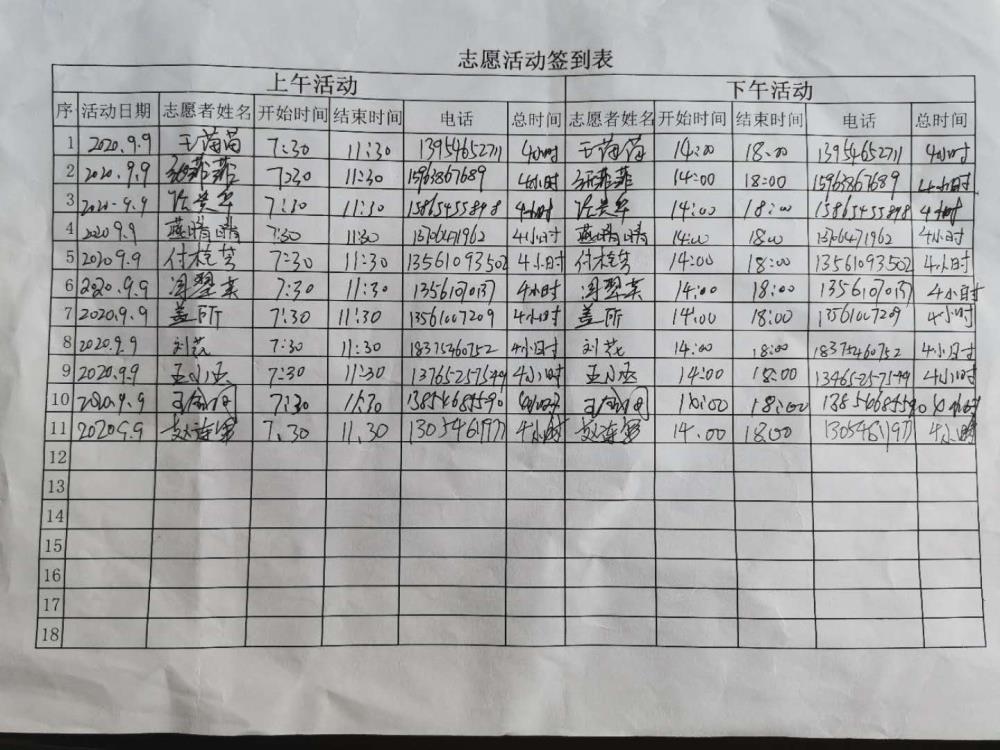 志愿活动签到表
上午活动 下午活动
序 活动日期 志愿者姓名 开始时间 结束时间 电话 总时间 志愿者姓名 开始时间 结束时间 电话 总时间
1 2020.9.9 王苗苗 7:30 11:30 13954652711 4小时 王苗苗 14:00 18:00 13954652711 4小时
2 2020.9.9 张菲菲 7:30 11:30 15963867689 4小时 张菲菲 14:00 18:00 15963867689 4小时
3 2020.9.9 7:30 11:30 15865455898 4小时 14:00 18:00 15865455898 4小时
4 2020 9.9 燕晴晴 7:30 11:30 13706471962 4小时 燕晴晴 14:00 18:00 13706471962 4小时
5 2020 9.9 7:30 11:30 13561093502 4小时 14:00 18:00 13561093502 4小时
6 2020.9.9 7:30 11:30 4小时 14:00 18:00 4小时
7 2020.9.9 盖所 7:30 11:30 13561007209 4小时 盖所 14:00 18:00 13561007209 4小时
8 2020.9.9 刘艺 7:30 11:30 18375460752 4小时 刘艺 14:00 18:00 18375460752 4小时
9 2020.9.9 王小丞 7:30 11:30 4小时 王小丞 14:00 18:00 4小时
10 2020.9.9 7:30 11:30 13854685590 4小时 18:00 13854685590 4小时
11 2020 9.9 赵连军 7.30 11.30 13054611971 4小时 赵连军 14.00 18:00 13054611971 4小时
12
13
14
15
16
17
18